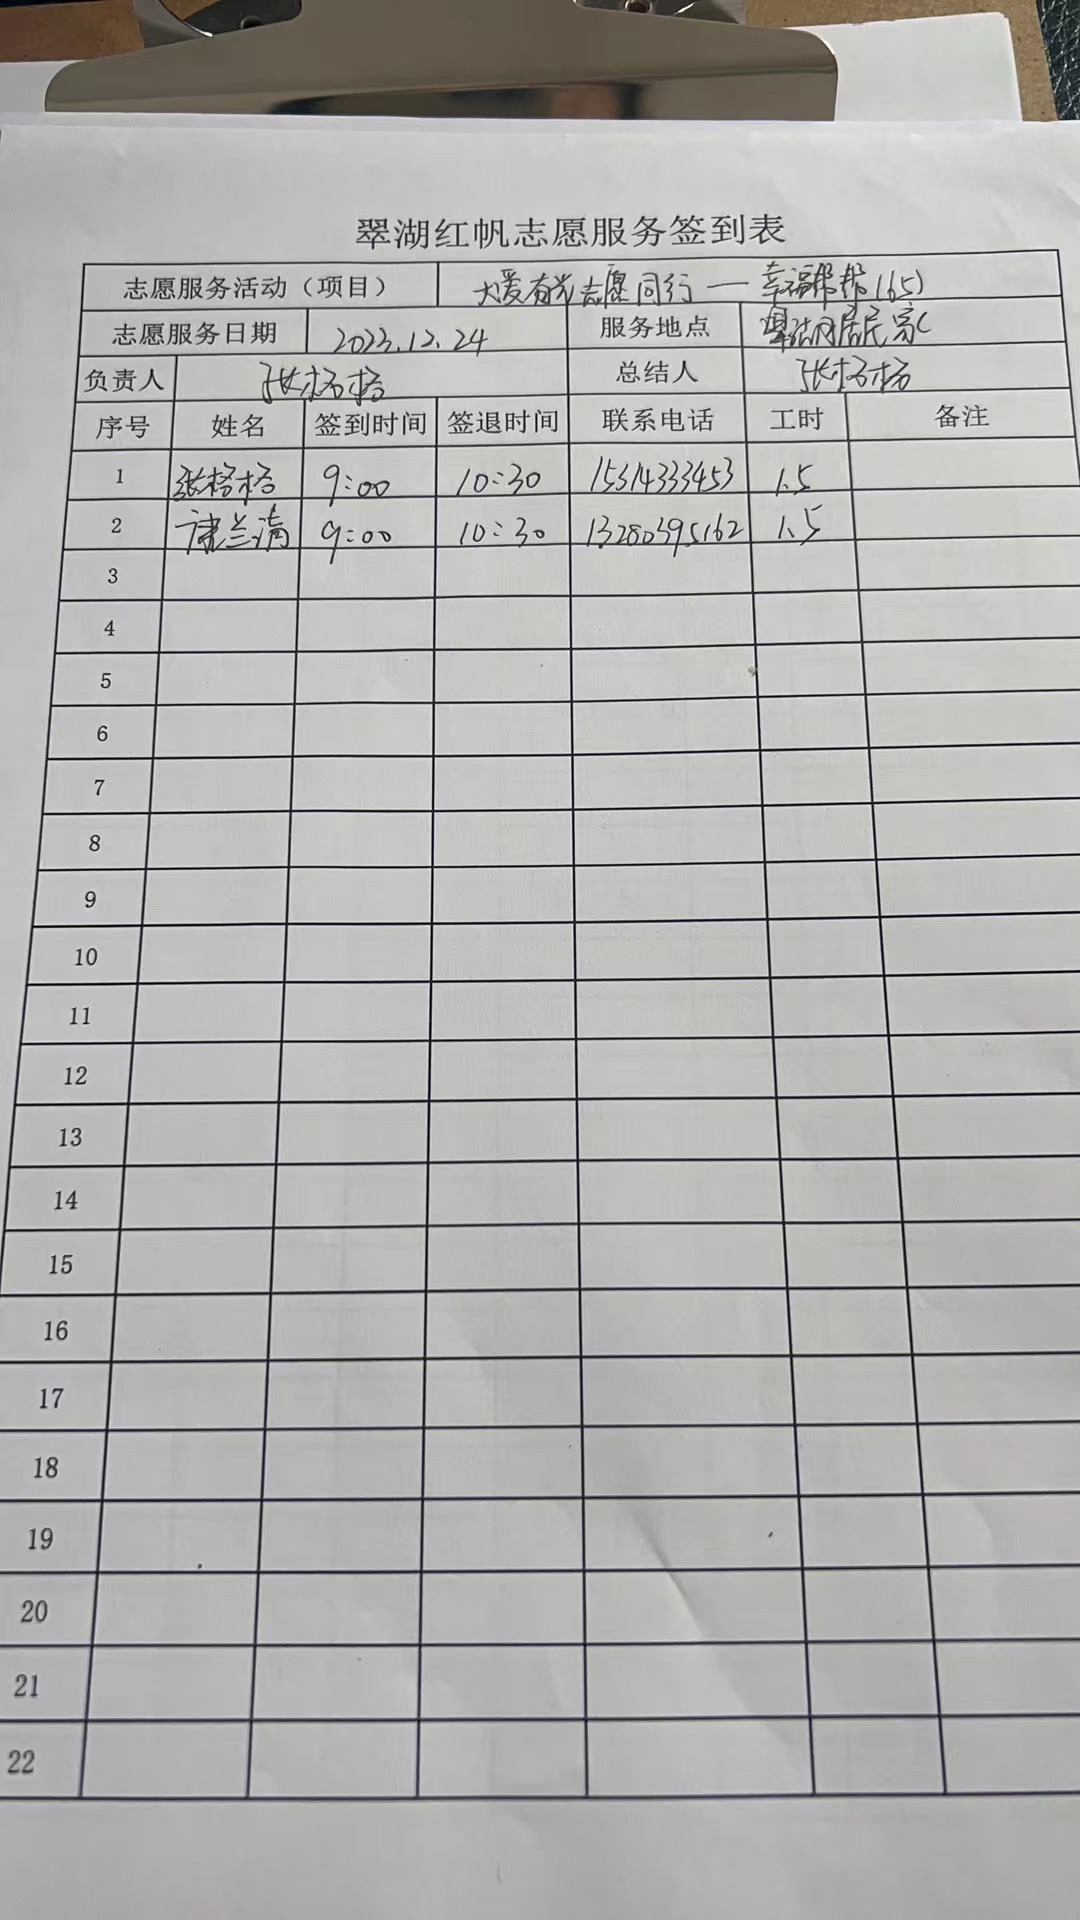 翠湖红帆志愿服务签到表
志愿服务活动（项目） 大爱有光志愿同行——幸福帮帮(65)
志愿服务日期 2023.12.24 服务地点 居民家
负责人 张格格 总结人 张格格
序号 姓名 签到时间 签退时间 联系电话 工时 备注
1 张格格 9:00 10:30 15314333453 1.5
2 兰清 9:00 10:30 13280395162 1.5
3
4
5
6
7
8
9
10
11
12
13
14
15
16
17
18
19
20
21
22